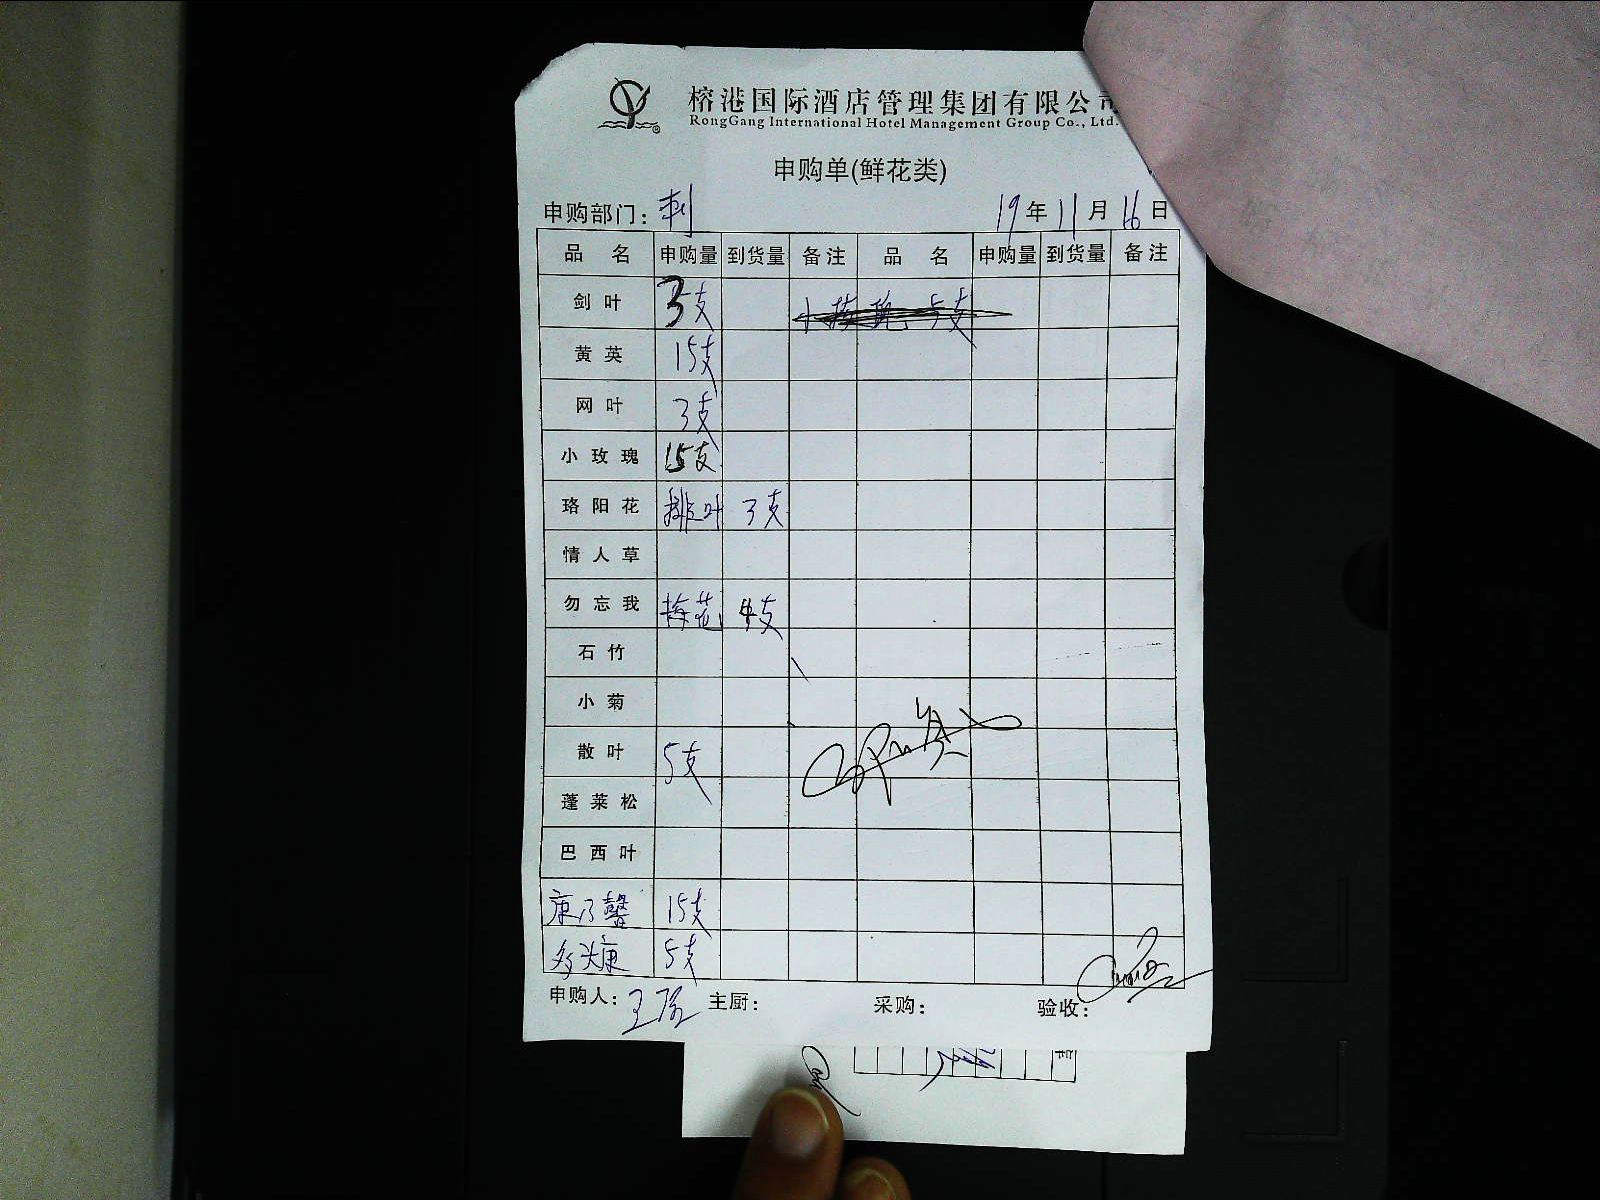 榕港国际酒店管理集团有限公司
RongGang International Hotel Management Group Co., Ltd.
申购单(鲜花类)
申购部门: 刺 19年11月16日
品名 申购量 到货量 备注 品名 申购量 到货量 备注
剑叶 3支
黄英 15支
网叶 3支
小玫瑰 15支
珞阳花 排叶 3支
情人草
勿忘我 梅花 4支
石竹
小菊
散叶 5支
蓬莱松
巴西叶
康乃馨 15支
多头康 5支
申购人: 主厨: 采购: 验收: